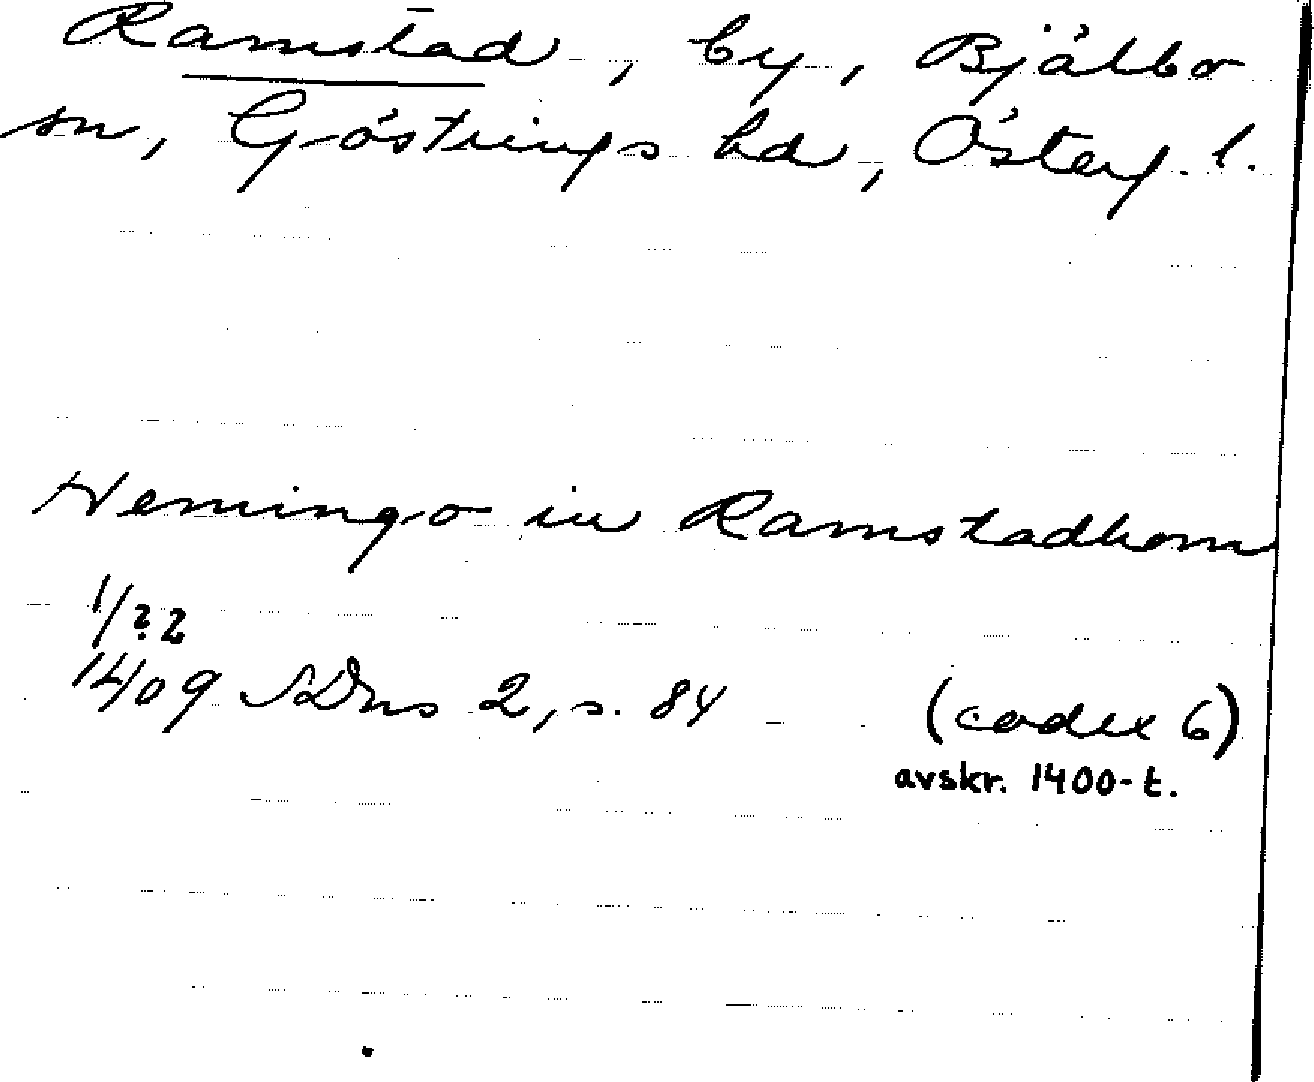 Ramstad, by, Bjälbo
sn, Göstrings hd, Österg. l.
Hemingo in Ramstadhom
1/?2
1409 SDns 2, s. 84 (codex 6)
avskr. 1400-t.